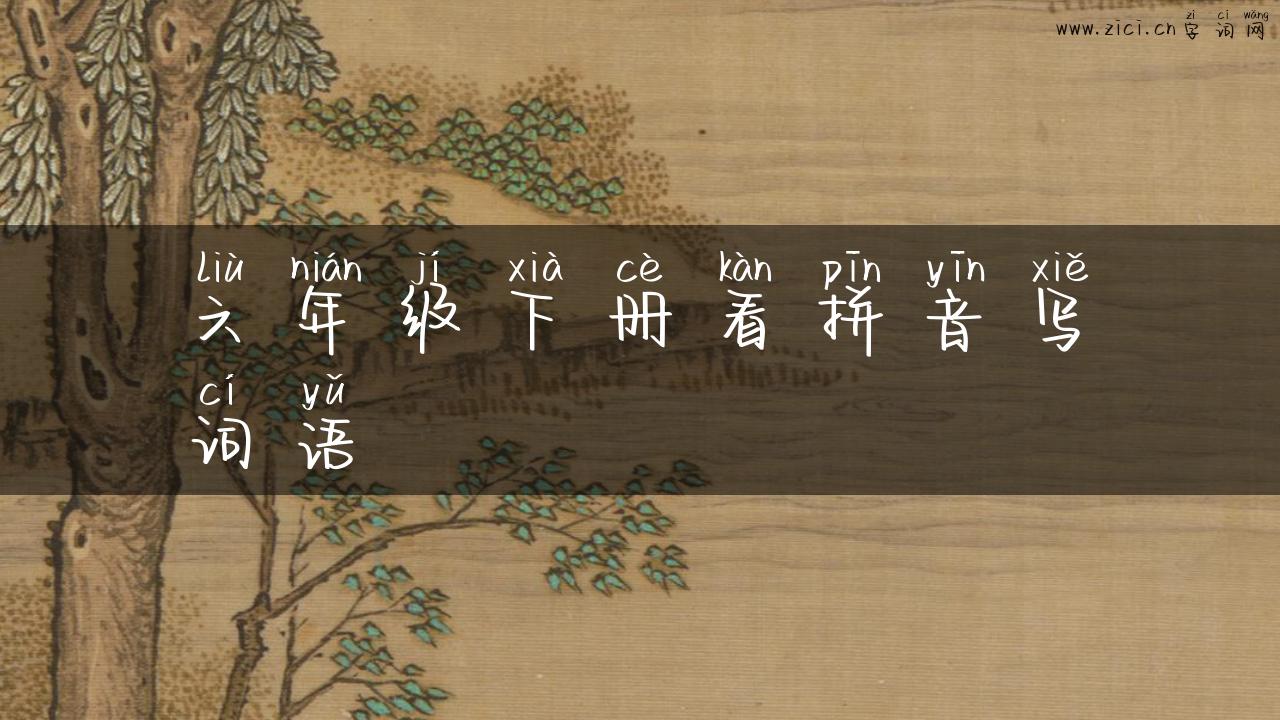 zì cí wǎng
www.zici.cn 字词网
liù nián jí xià cè kàn pīn yīn xiě
六年级下册看拼音写
cí yǔ
词语